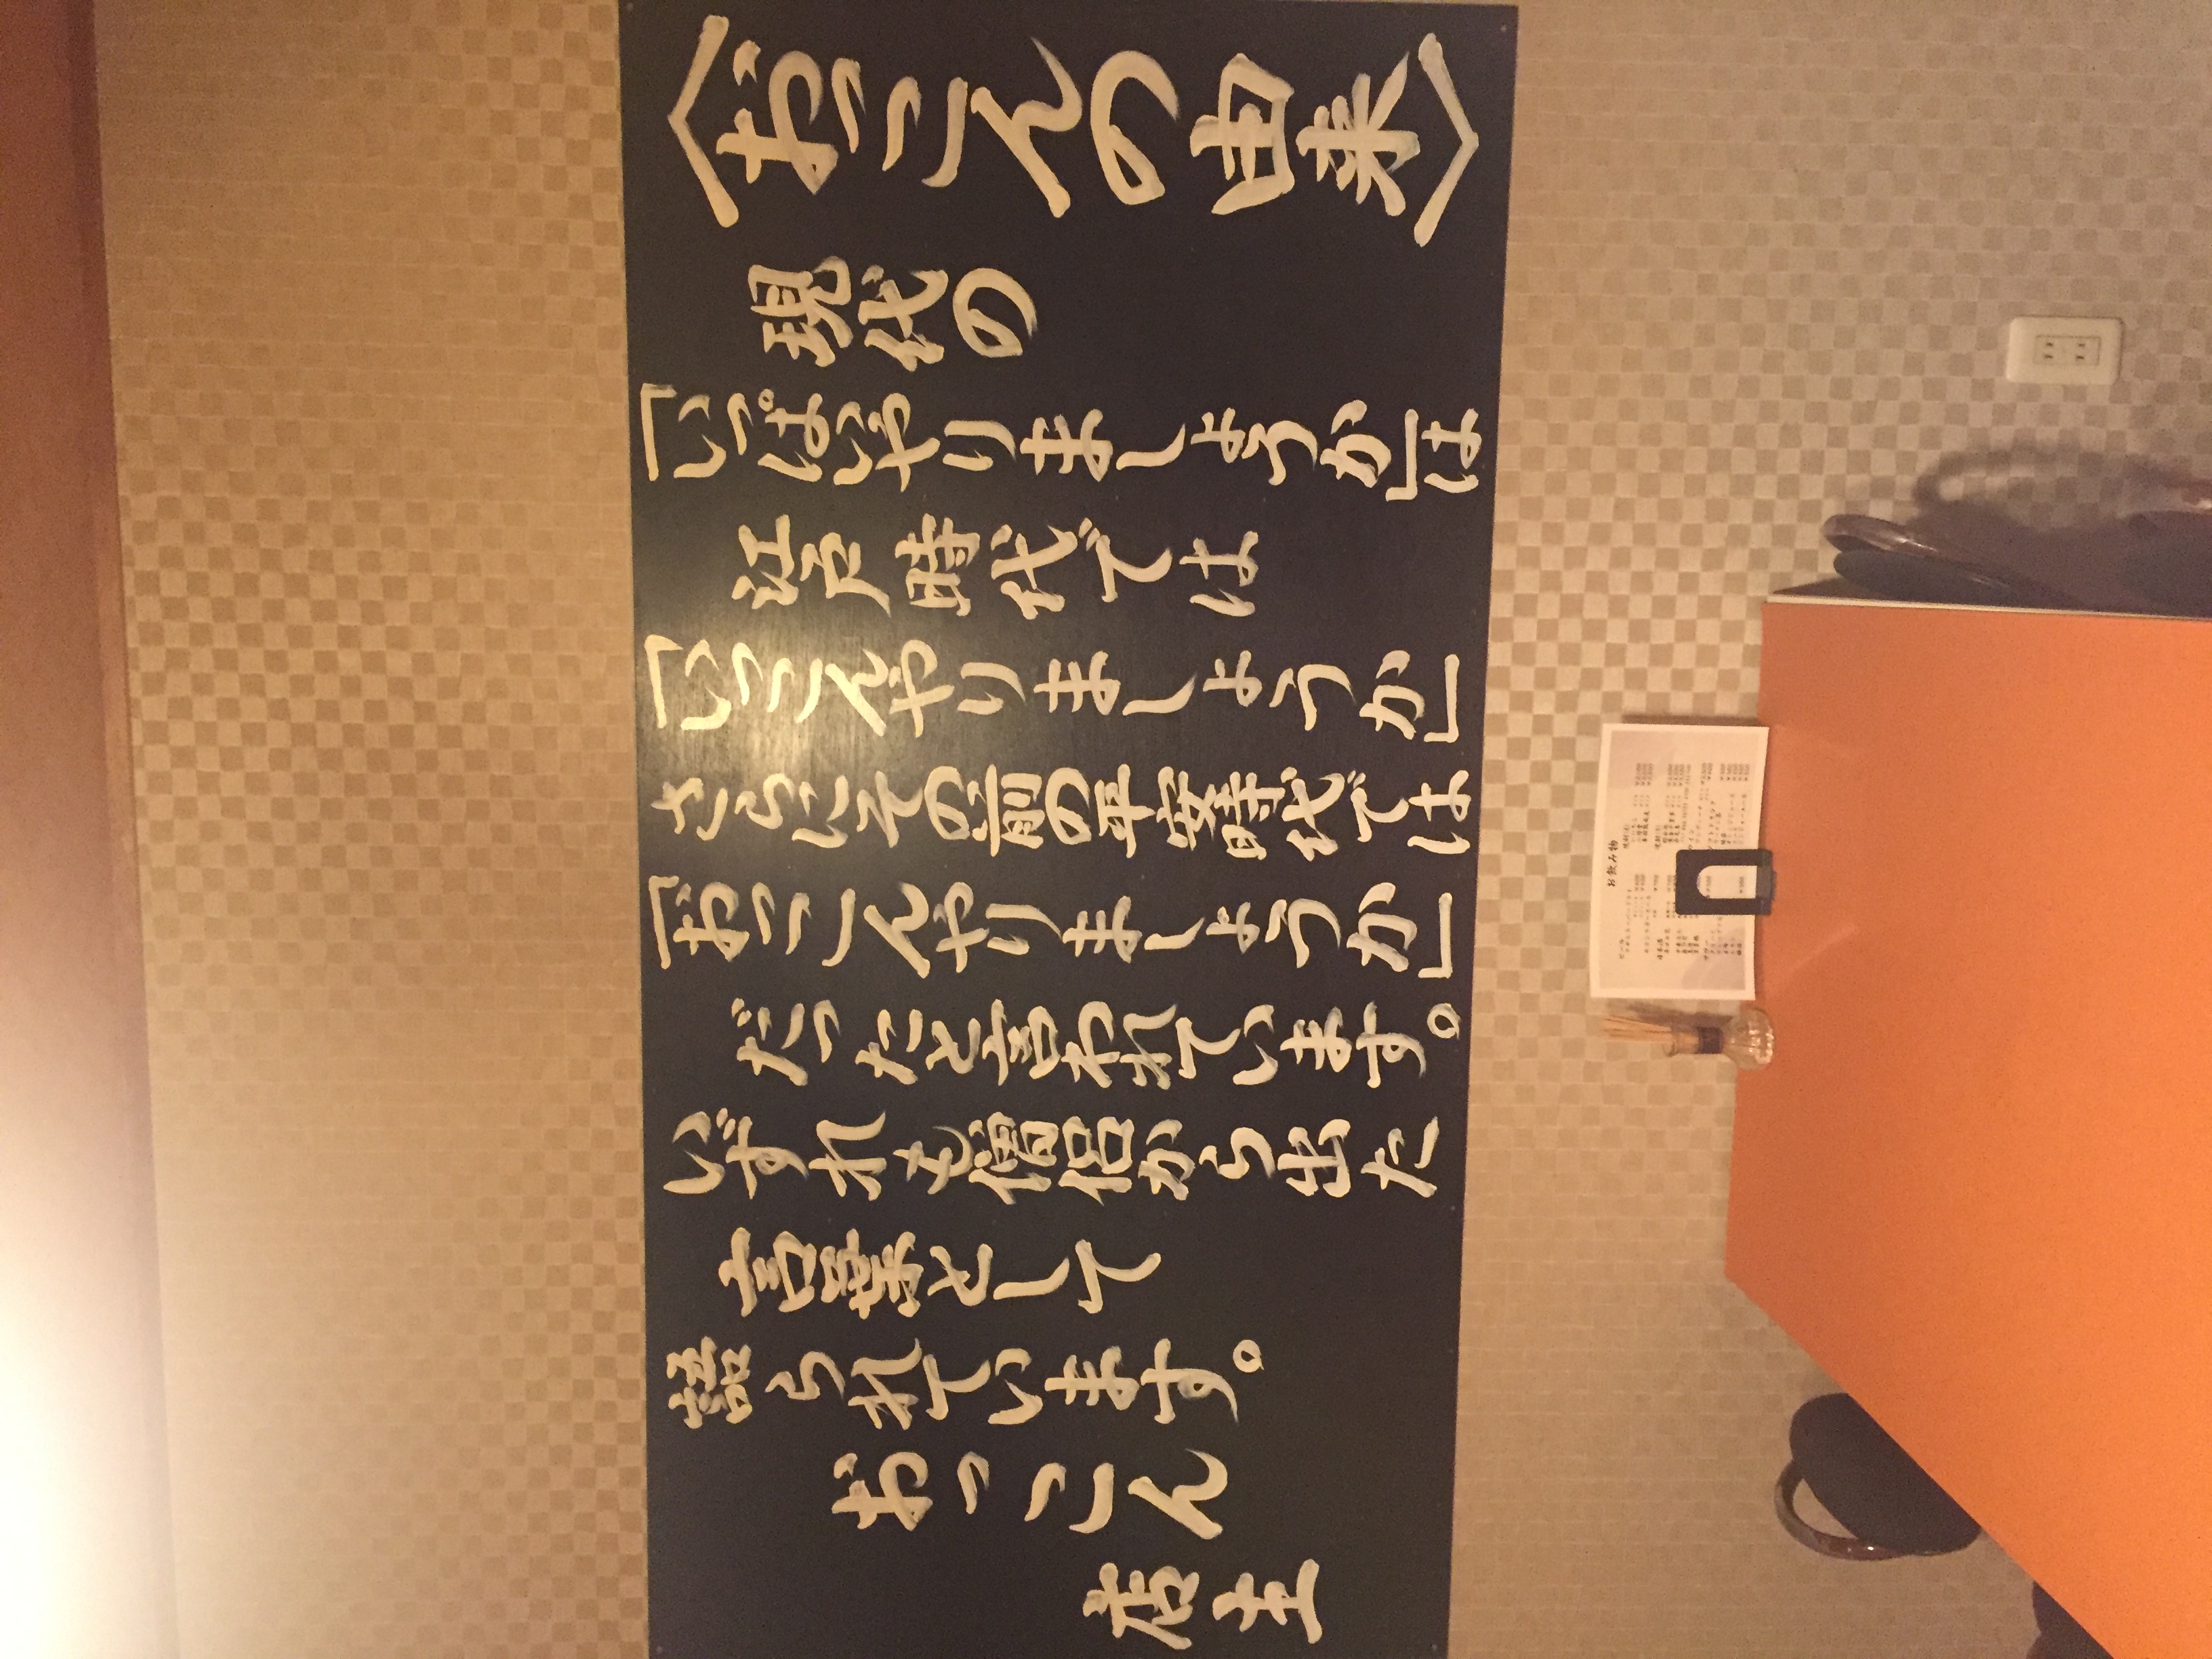 〈おっこんの由来〉
現代の
「いっぱいやりましょうか」は
江戸時代では
「いっこんやりましょうか」
さらにその前の平安時代では
「おっこんやりましょうか」
だったと言われています。
いずれも僧侶から出た
言葉として
語られています。
おっこん
店主
お飲み物